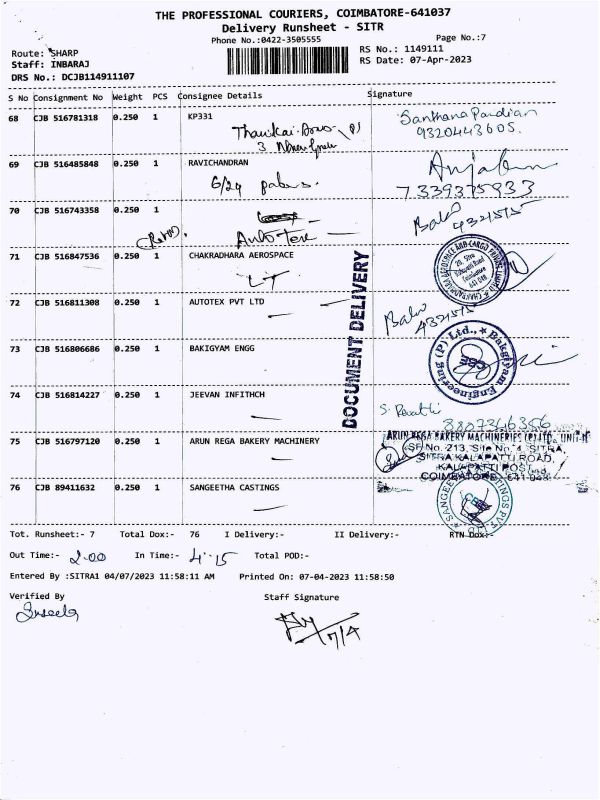 THE PROFESSIONAL COURIERS, COIMBATORE-641037
Delivery Runsheet - SITR
Phone No.:0422-3505555
Page No.:7
Route: SHARP
RS No.: 1149111
Staff: INBARAJ
RS Date: 07-Apr-2023
DRS No.: DCJB114911107
S No Consignment No Weight PCS Consignee Details Signature
68 CJB 516781318 0.250 1 KP331
Santhana Pandian
9320443605.
69 CJB 516485848 0.250 1 RAVICHANDRAN
6/29
7339375933
70 CJB 516743358 0.250 1
71 CJB 516847536 0.250 1 CHAKRADHARA AEROSPACE
LT
72 CJB 516811308 0.250 1 AUTOTEX PVT LTD
DOCUMENT DELIVERY
73 CJB 516806686 0.250 1 BAKIGYAM ENGG
Bakgiyam Engineering (P) Ltd.,
74 CJB 516814227 0.250 1 JEEVAN INFITHCH
S. Revathi
8807346356
75 CJB 516797120 0.250 1 ARUN REGA BAKERY MACHINERY
ARUN REGA BAKERY MACHINERIES (P) LTD., UNIT-II
SF No. 213, Site No. 4, SITRA,
SITRA KALAPATTI ROAD,
KALAPATTI POST
COIMBATORE - 641 048
76 CJB 89411632 0.250 1 SANGEETHA CASTINGS
Tot. Runsheet:- 7 Total Dox:- 76 I Delivery:- II Delivery:- RTN Dox:-
Out Time:- 2.00 In Time:- 4.15 Total POD:-
Entered By :SITRA1 04/07/2023 11:58:11 AM Printed On: 07-04-2023 11:58:50
Verified By Staff Signature
7/4